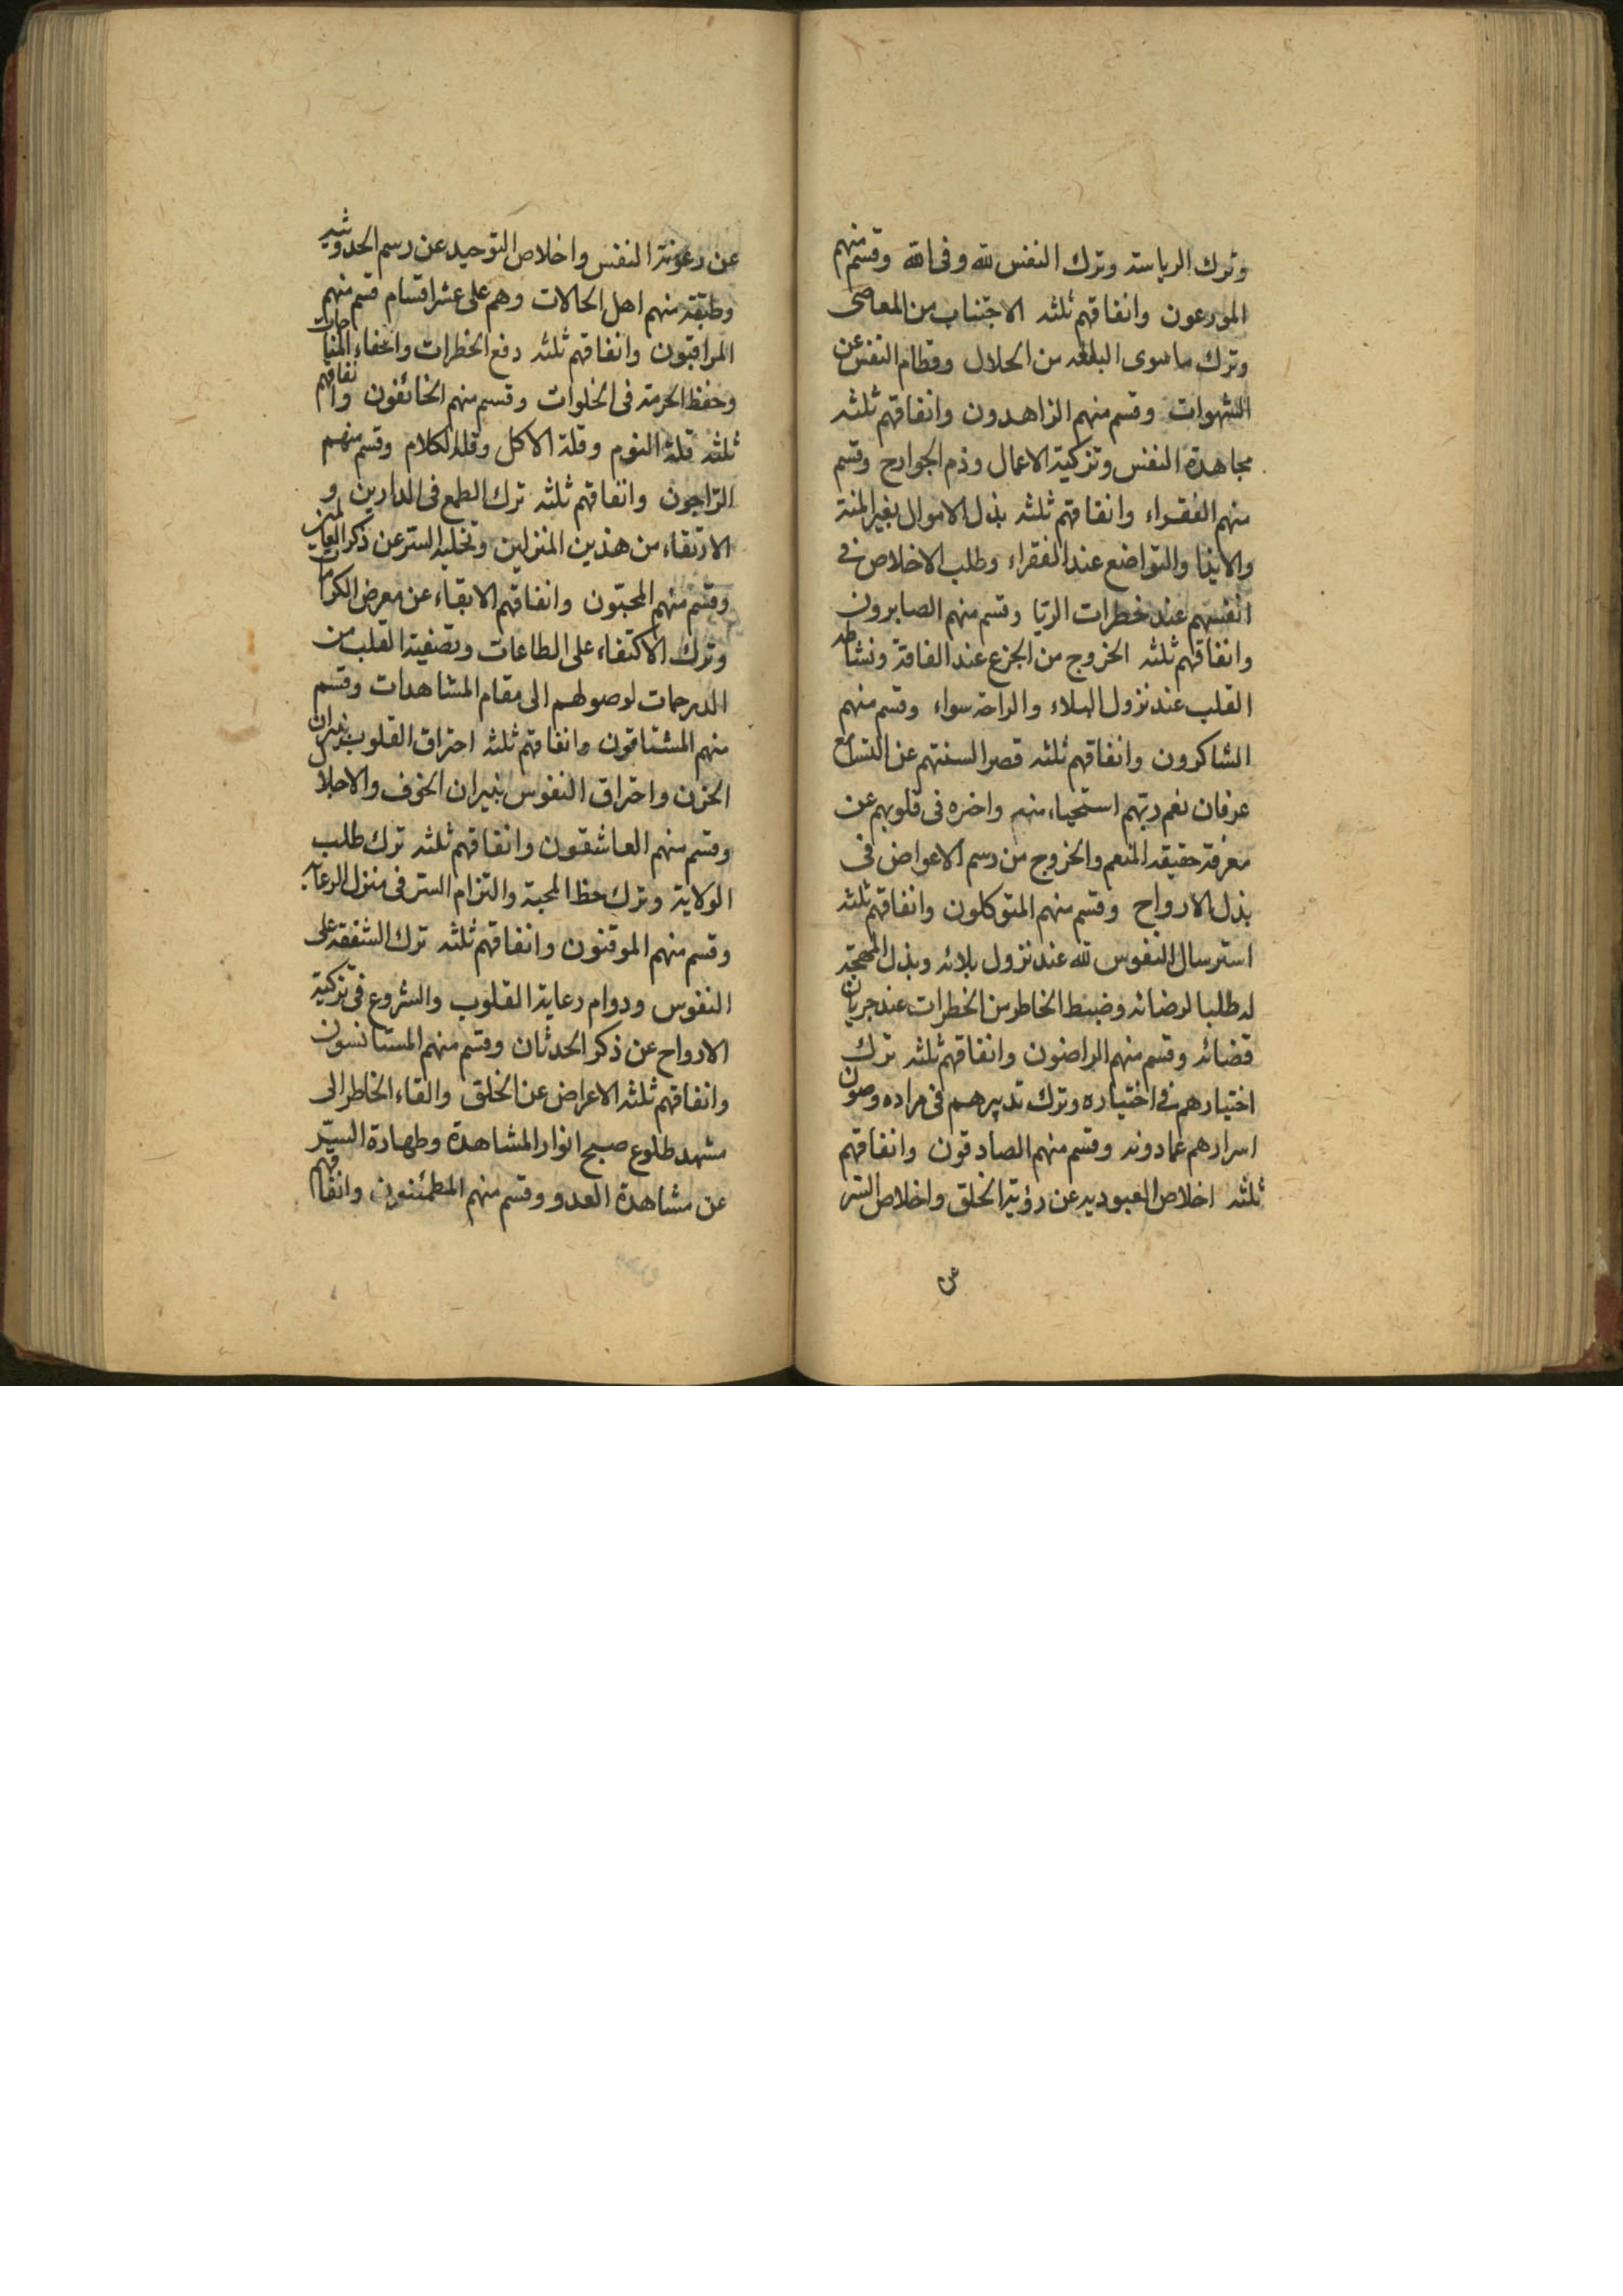 وترك الرياسة وترك النفس لله وفى الله وقسم منهم
المورعون وانفاقهم ثلثه الاجتناب من المعاصى
وترك ما سوى البلغه من الحلال وفطام النفس عن
الشهوات وقسم منهم الزاهدون وانفاقهم ثلثه
مجاهدة النفس وتزكية الاعمال وذم الجوارح وقسم
منهم الفقراء وانفاقهم ثلثه بذل الاموال بغير المنة
والايذا والتواضع عند الفقراء وطلب الاخلاص فى
انفسهم عند خطرات الريا وقسم منهم الصابرون
وانفاقهم ثلثه الخروج من الجزع عند الفاقة ونشاطه
القلب عند نزول البلاء والراحة سواء وقسم منهم
الشاكرون وانفاقهم ثلثه قصر السنتهم عن
عرفان نعم ربهم استحياء منه واخره فى قلوبهم عن
معرفة حقيقه المنعم والخروج من رسم الاعواض فى
بذل الارواح وقسم منهم المتوكلون وانفاقهم ثلثه
استرسال النفوس لله عند نزول بلائه وبذل المهجة
له طلبا لرضائه وضبط الخاطر من الخطرات عند جريان
قضائه وقسم منهم الراضون وانفاقهم ثلثه ترك
اختيارهم فى اختياره وترك تدبيرهم فى مراده وصون
اسرارهم عما دونه وقسم منهم الصادقون وانفاقهم
ثلثه اخلاص العبوديه عن رؤية الخلق واخلاص السر
عن
عن رعونة النفس واخلاص التوحيد عن رسم الحدوثيه
وطبقة منهم اهل الحالات وهم على عشر اقسام قسم منهم
المراقبون وانفاقهم ثلثه دفع الخطرات واخفاء المناجات
وحفظ الحرمة فى الخلوات وقسم منهم الخائفون وانفاقهم
ثلثه قلة النوم وقلة الاكل وقله الكلام وقسم منهم
الراجون وانفاقهم ثلثه ترك الطمع فى الدارين و
الارتقاء من هذين المنزلين وتخليه السر عن ذكر العالمين
وقسم منهم المحبون وانفاقهم الابقاء عن معرض الكرامات
وترك الاكتفاء على الطاعات وتصفية القلب من
الدرجات لوصولهم الى مقام المشاهدات وقسم
منهم المشتاقون وانفاقهم ثلثه احتراق القلوب بنيران
الحزن واحتراق النفوس بنيران الخوف والاجلال
وقسم منهم العاشقون وانفاقهم ثلثه ترك طلب
الولاية وترك حظ المحبة والتزام السر فى منزل الرعاية
وقسم منهم الموقنون وانفاقهم ثلثه ترك الشفقه على
النفوس ودوام رعاية القلوب والشروع فى تزكية
الارواح عن ذكر الحدثان وقسم منهم المستانسون
وانفاقهم ثلثه الاعراض عن الخلق والقاء الخاطر الى
مشهد طلوع صبح انوار المشاهدة وطهارة السر
عن مشاهدة العدو وقسم منهم المطمئنون وانفاقهم